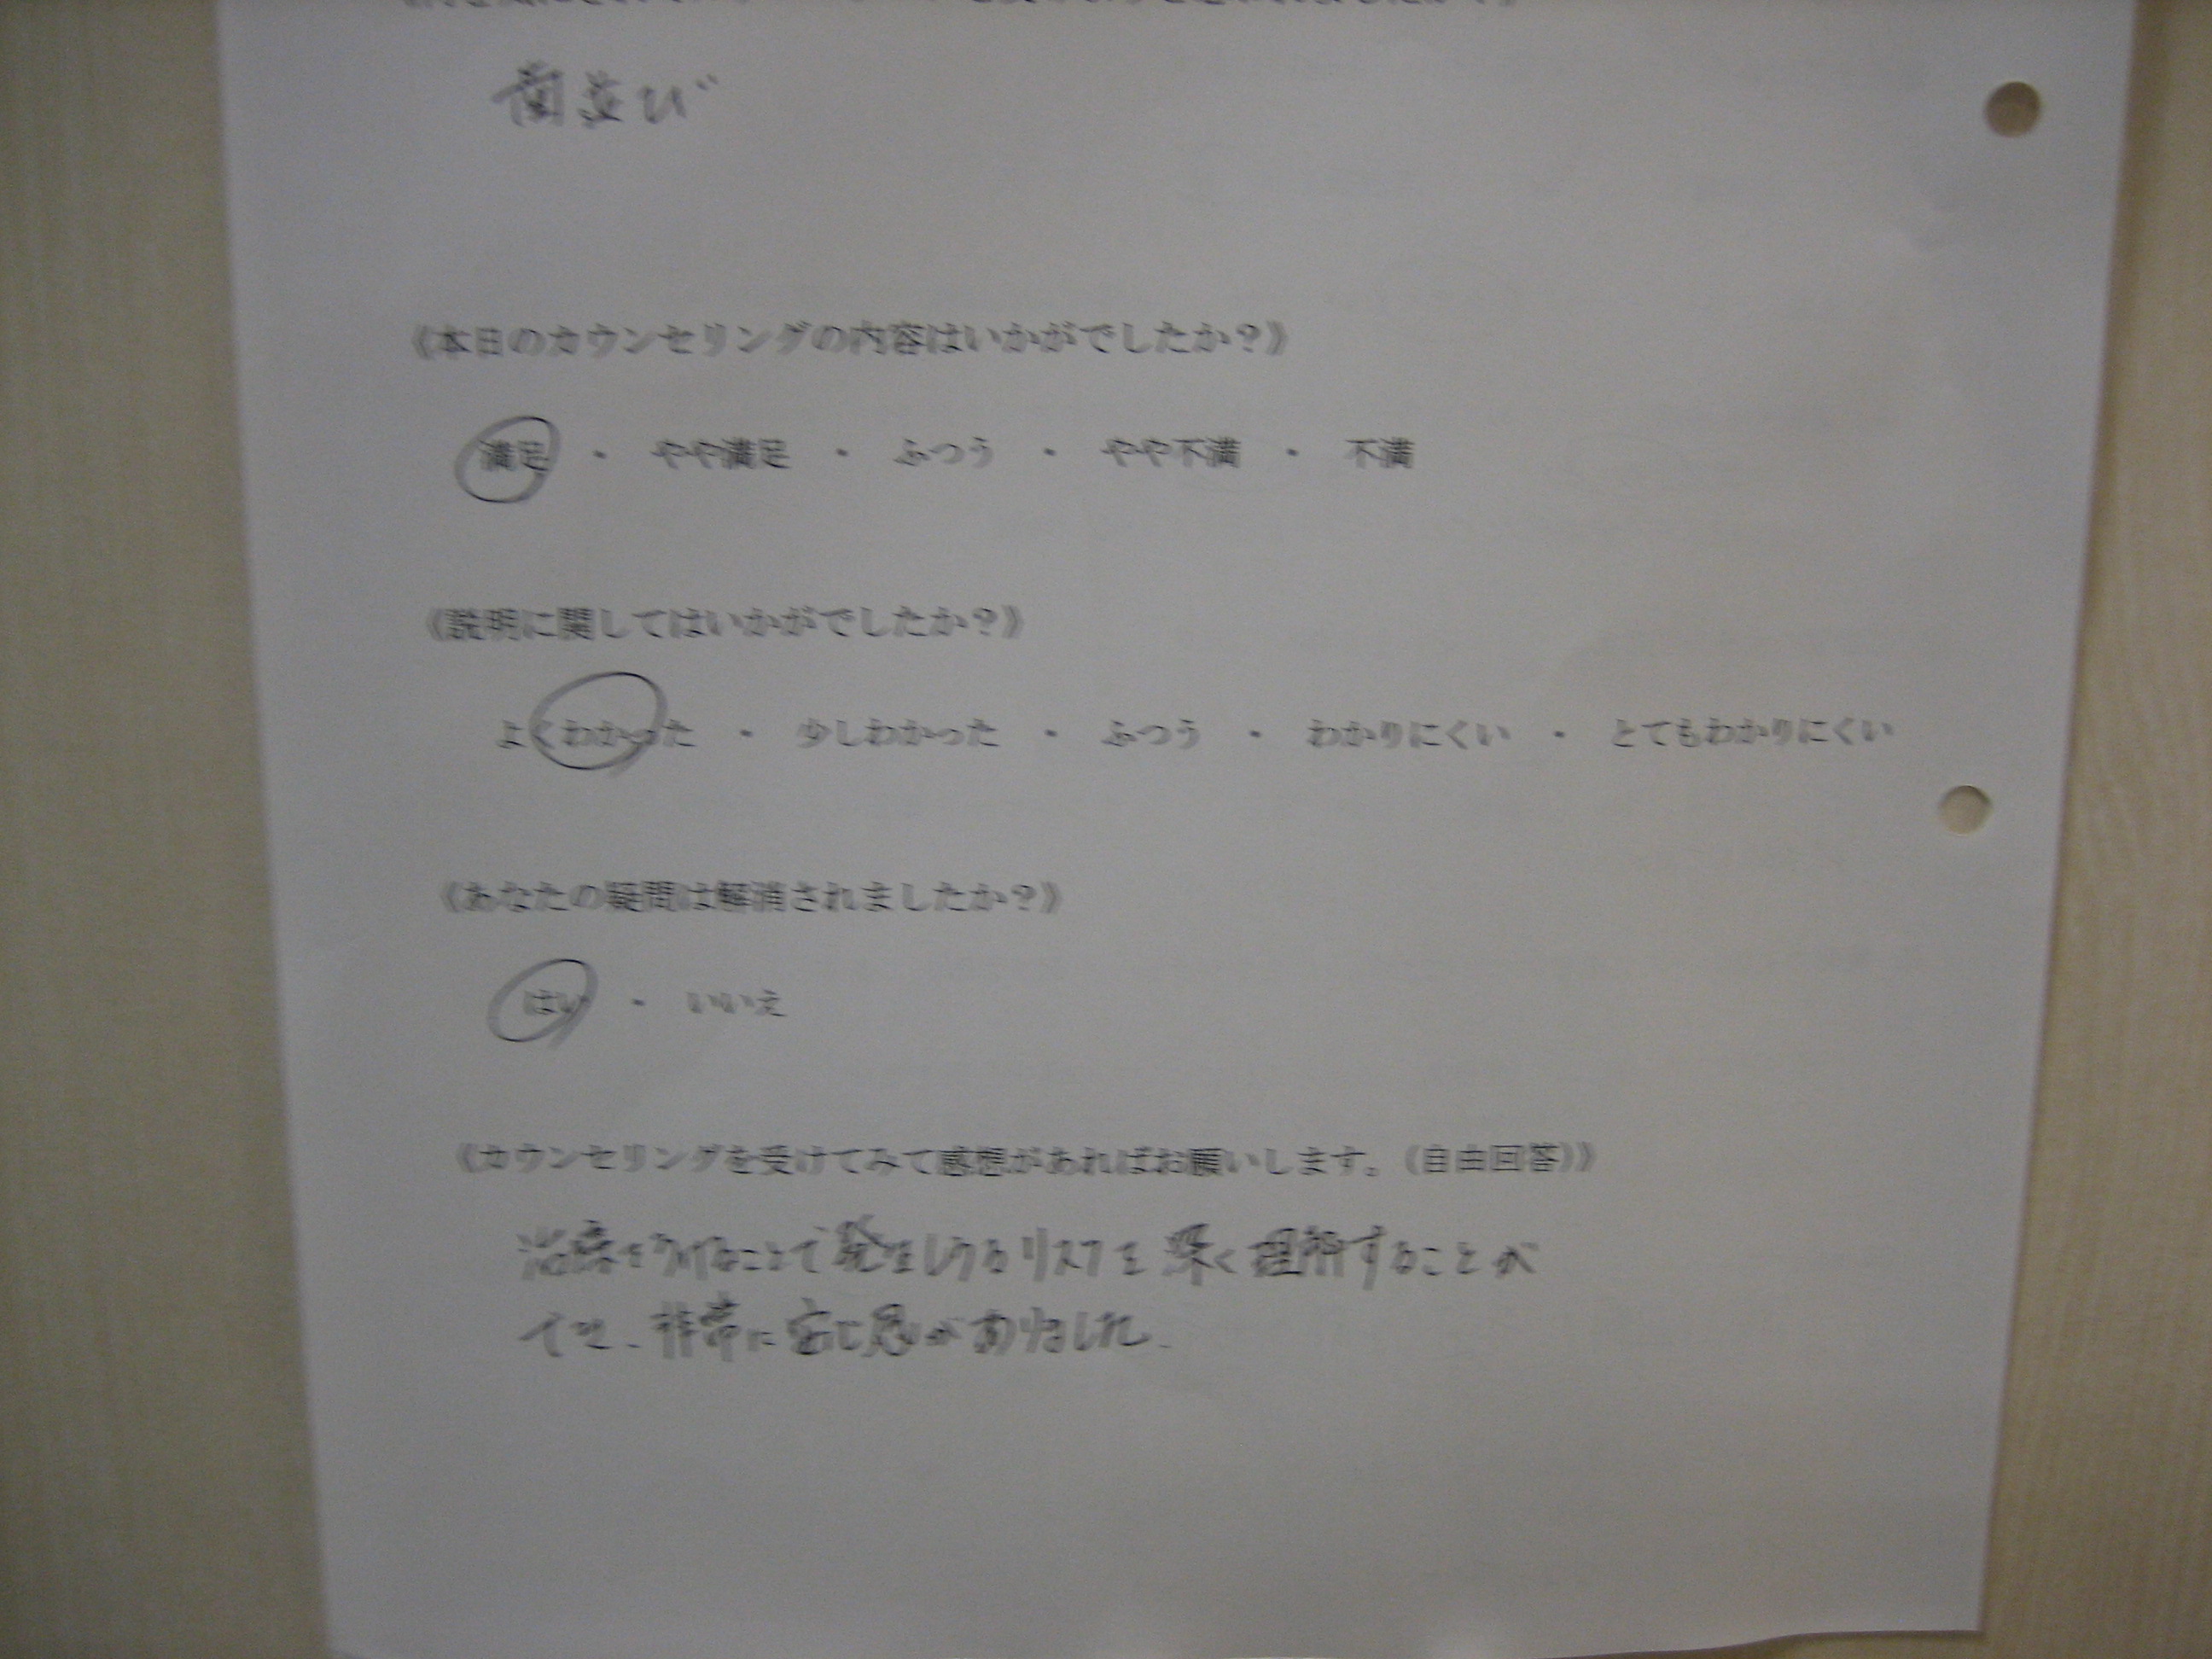 歯並び
《本日のカウンセリングの内容はいかがでしたか？》
満足 ・ やや満足 ・ ふつう ・ やや不満 ・ 不満
《説明に関してはいかがでしたか？》
よくわかった ・ 少しわかった ・ ふつう ・ わかりにくい ・ とてもわかりにくい
《あなたの疑問は解消されましたか？》
はい ・ いいえ
《カウンセリングを受けてみて感想があればお願いします。（自由回答）》
治療をうけることで発生しうるリスクを深く理解することが
でき、非常に安心感がありました。